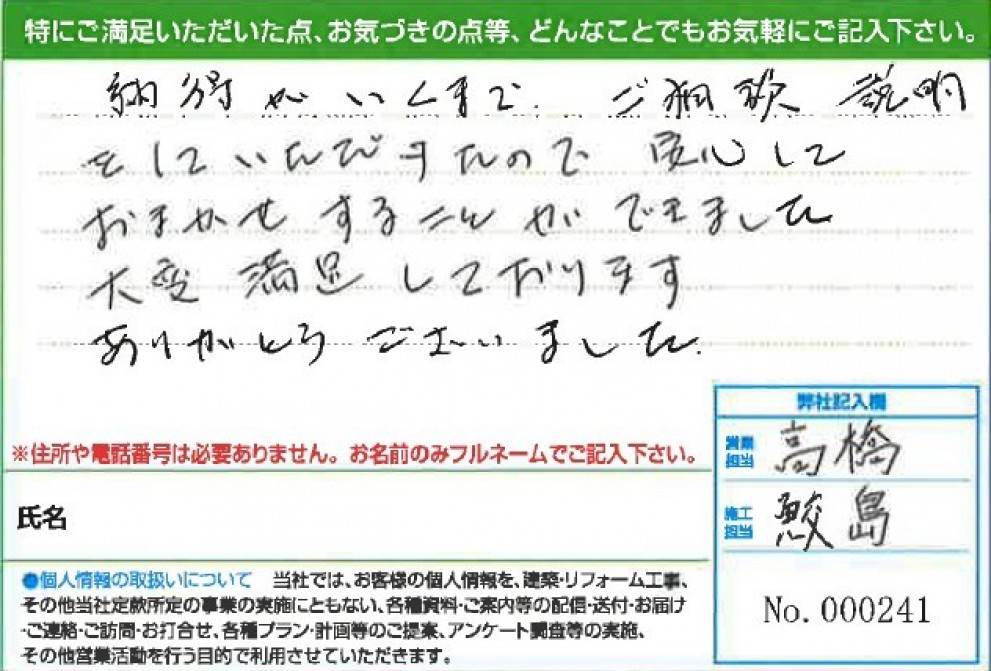 特にご満足いただいた点、お気づきの点等、どんなことでもお気軽にご記入下さい。
納得がいくまで、ご相談 説明
をしていただけたので 安心して
おまかせすることができました
大変 満足しております
ありがとうございました.
※住所や電話番号は必要ありません。お名前のみフルネームでご記入下さい。
氏名
●個人情報の取扱いについて 当社では、お客様の個人情報を、建築・リフォーム工事、
その他当社定款所定の事業の実施にともない、各種資料・ご案内等の配信・送付・お届け
・ご連絡・ご訪問・お打合せ、各種プラン・計画等のご提案、アンケート調査等の実施、
その他営業活動を行う目的で利用させていただきます。
弊社記入欄
営業担当 高橋
施工担当 鮫島
No. 000241